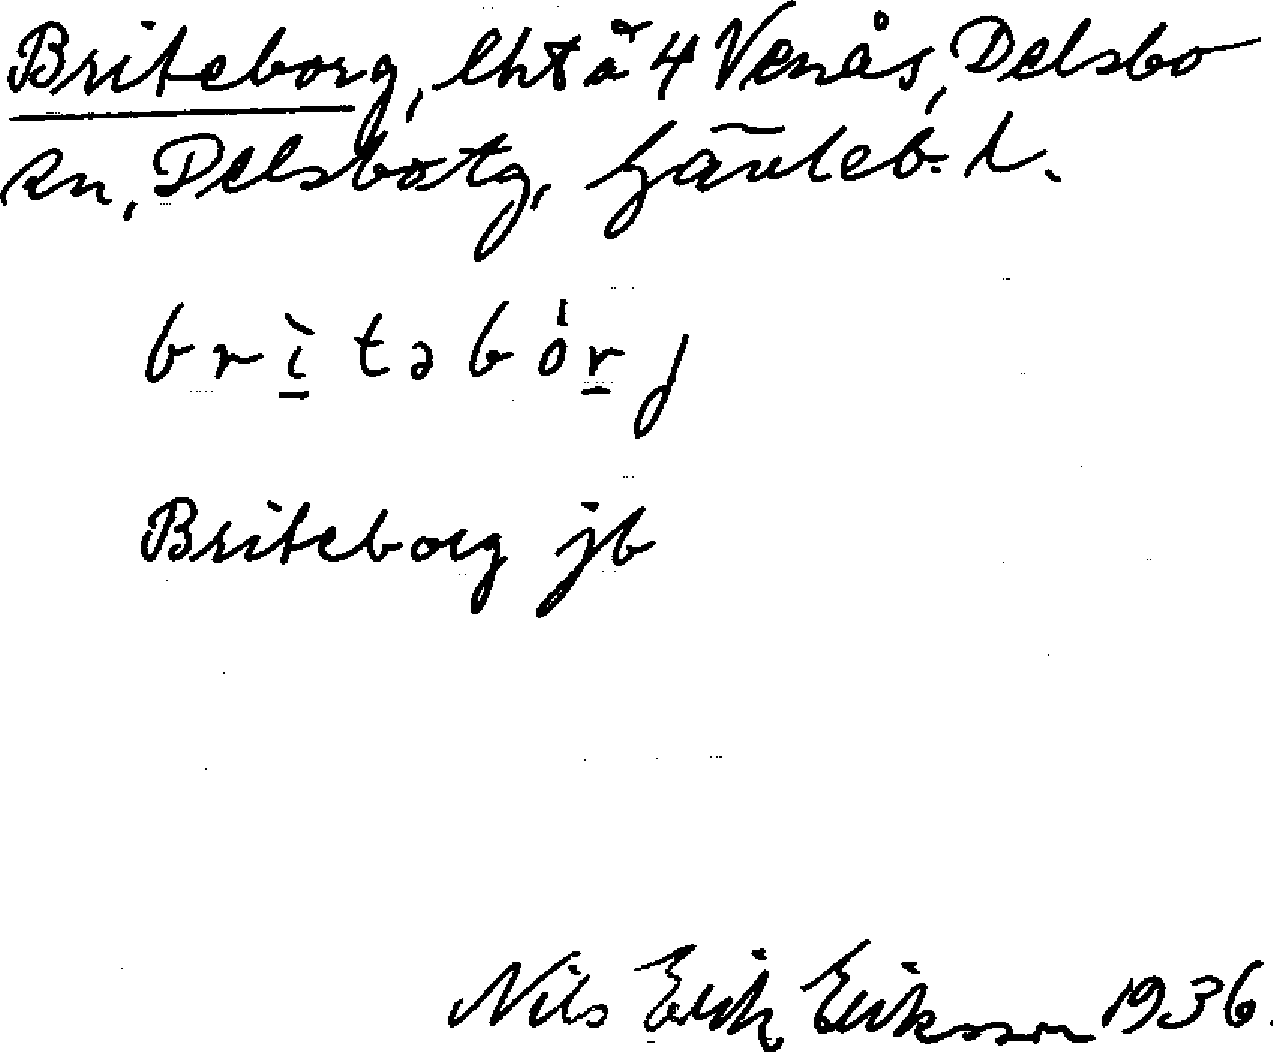 Briteborg, lht å 4 Venås, Delsbo
sn, Delsbo tg, Gävleb. l.
brìtəbórj
Briteborg jb
Nils Erik Eriksson 1936.